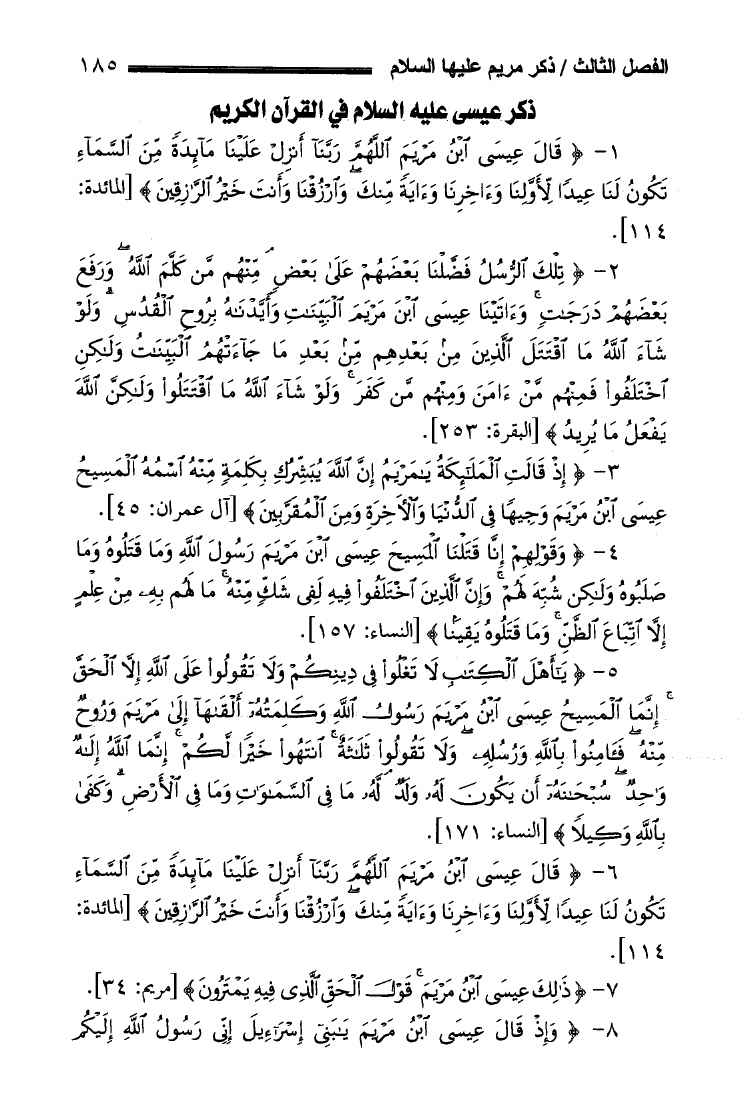 الفصل الثالث / ذكر مريم عليها السلام ١٨٥
ذكر عيسى عليه السلام في القرآن الكريم
١- ﴿ قَالَ عِيسَى ٱبْنُ مَرْيَمَ ٱللَّهُمَّ رَبَّنَآ أَنزِلْ عَلَيْنَا مَآئِدَةً مِّنَ ٱلسَّمَآءِ
تَكُونُ لَنَا عِيدًا لِّأَوَّلِنَا وَءَاخِرِنَا وَءَايَةً مِّنكَ ۖ وَٱرْزُقْنَا وَأَنتَ خَيْرُ ٱلرَّٰزِقِينَ ﴾ [المائدة:
١١٤].
٢- ﴿ تِلْكَ ٱلرُّسُلُ فَضَّلْنَا بَعْضَهُمْ عَلَىٰ بَعْضٍ ۘ مِّنْهُم مَّن كَلَّمَ ٱللَّهُ ۖ وَرَفَعَ
بَعْضَهُمْ دَرَجَٰتٍ ۚ وَءَاتَيْنَا عِيسَى ٱبْنَ مَرْيَمَ ٱلْبَيِّنَٰتِ وَأَيَّدْنَٰهُ بِرُوحِ ٱلْقُدُسِ ۗ وَلَوْ
شَآءَ ٱللَّهُ مَا ٱقْتَتَلَ ٱلَّذِينَ مِنۢ بَعْدِهِم مِّنۢ بَعْدِ مَا جَآءَتْهُمُ ٱلْبَيِّنَٰتُ وَلَٰكِنِ
ٱخْتَلَفُوا۟ فَمِنْهُم مَّنْ ءَامَنَ وَمِنْهُم مَّن كَفَرَ ۚ وَلَوْ شَآءَ ٱللَّهُ مَا ٱقْتَتَلُوا۟ وَلَٰكِنَّ ٱللَّهَ
يَفْعَلُ مَا يُرِيدُ ﴾ [البقرة: ٢٥٣].
٣- ﴿ إِذْ قَالَتِ ٱلْمَلَٰٓئِكَةُ يَٰمَرْيَمُ إِنَّ ٱللَّهَ يُبَشِّرُكِ بِكَلِمَةٍ مِّنْهُ ٱسْمُهُ ٱلْمَسِيحُ
عِيسَى ٱبْنُ مَرْيَمَ وَجِيهًا فِى ٱلدُّنْيَا وَٱلْأَخِرَةِ وَمِنَ ٱلْمُقَرَّبِينَ ﴾ [آل عمران: ٤٥].
٤- ﴿ وَقَوْلِهِمْ إِنَّا قَتَلْنَا ٱلْمَسِيحَ عِيسَى ٱبْنَ مَرْيَمَ رَسُولَ ٱللَّهِ وَمَا قَتَلُوهُ وَمَا
صَلَبُوهُ وَلَٰكِن شُبِّهَ لَهُمْ ۚ وَإِنَّ ٱلَّذِينَ ٱخْتَلَفُوا۟ فِيهِ لَفِى شَكٍّ مِّنْهُ ۚ مَا لَهُم بِهِۦ مِنْ عِلْمٍ
إِلَّا ٱتِّبَاعَ ٱلظَّنِّ ۚ وَمَا قَتَلُوهُ يَقِينًۢا ﴾ [النساء: ١٥٧].
٥- ﴿ يَٰٓأَهْلَ ٱلْكِتَٰبِ لَا تَغْلُوا۟ فِى دِينِكُمْ وَلَا تَقُولُوا۟ عَلَى ٱللَّهِ إِلَّا ٱلْحَقَّ
ۚ إِنَّمَا ٱلْمَسِيحُ عِيسَى ٱبْنُ مَرْيَمَ رَسُولُ ٱللَّهِ وَكَلِمَتُهُۥٓ أَلْقَىٰهَآ إِلَىٰ مَرْيَمَ وَرُوحٌ
مِّنْهُ ۖ فَـَٔامِنُوا۟ بِٱللَّهِ وَرُسُلِهِۦ ۖ وَلَا تَقُولُوا۟ ثَلَٰثَةٌ ۚ ٱنتَهُوا۟ خَيْرًا لَّكُمْ ۚ إِنَّمَا ٱللَّهُ إِلَٰهٌ
وَٰحِدٌ ۖ سُبْحَٰنَهُۥٓ أَن يَكُونَ لَهُۥ وَلَدٌ ۘ لَّهُۥ مَا فِى ٱلسَّمَٰوَٰتِ وَمَا فِى ٱلْأَرْضِ ۗ وَكَفَىٰ
بِٱللَّهِ وَكِيلًا ﴾ [النساء: ١٧١].
٦- ﴿ قَالَ عِيسَى ٱبْنُ مَرْيَمَ ٱللَّهُمَّ رَبَّنَآ أَنزِلْ عَلَيْنَا مَآئِدَةً مِّنَ ٱلسَّمَآءِ
تَكُونُ لَنَا عِيدًا لِّأَوَّلِنَا وَءَاخِرِنَا وَءَايَةً مِّنكَ ۖ وَٱرْزُقْنَا وَأَنتَ خَيْرُ ٱلرَّٰزِقِينَ ﴾ [المائدة:
١١٤].
٧- ﴿ ذَٰلِكَ عِيسَى ٱبْنُ مَرْيَمَ ۚ قَوْلَ ٱلْحَقِّ ٱلَّذِى فِيهِ يَمْتَرُونَ ﴾ [مريم: ٣٤].
٨- ﴿ وَإِذْ قَالَ عِيسَى ٱبْنُ مَرْيَمَ يَٰبَنِىٓ إِسْرَٰٓءِيلَ إِنِّى رَسُولُ ٱللَّهِ إِلَيْكُم